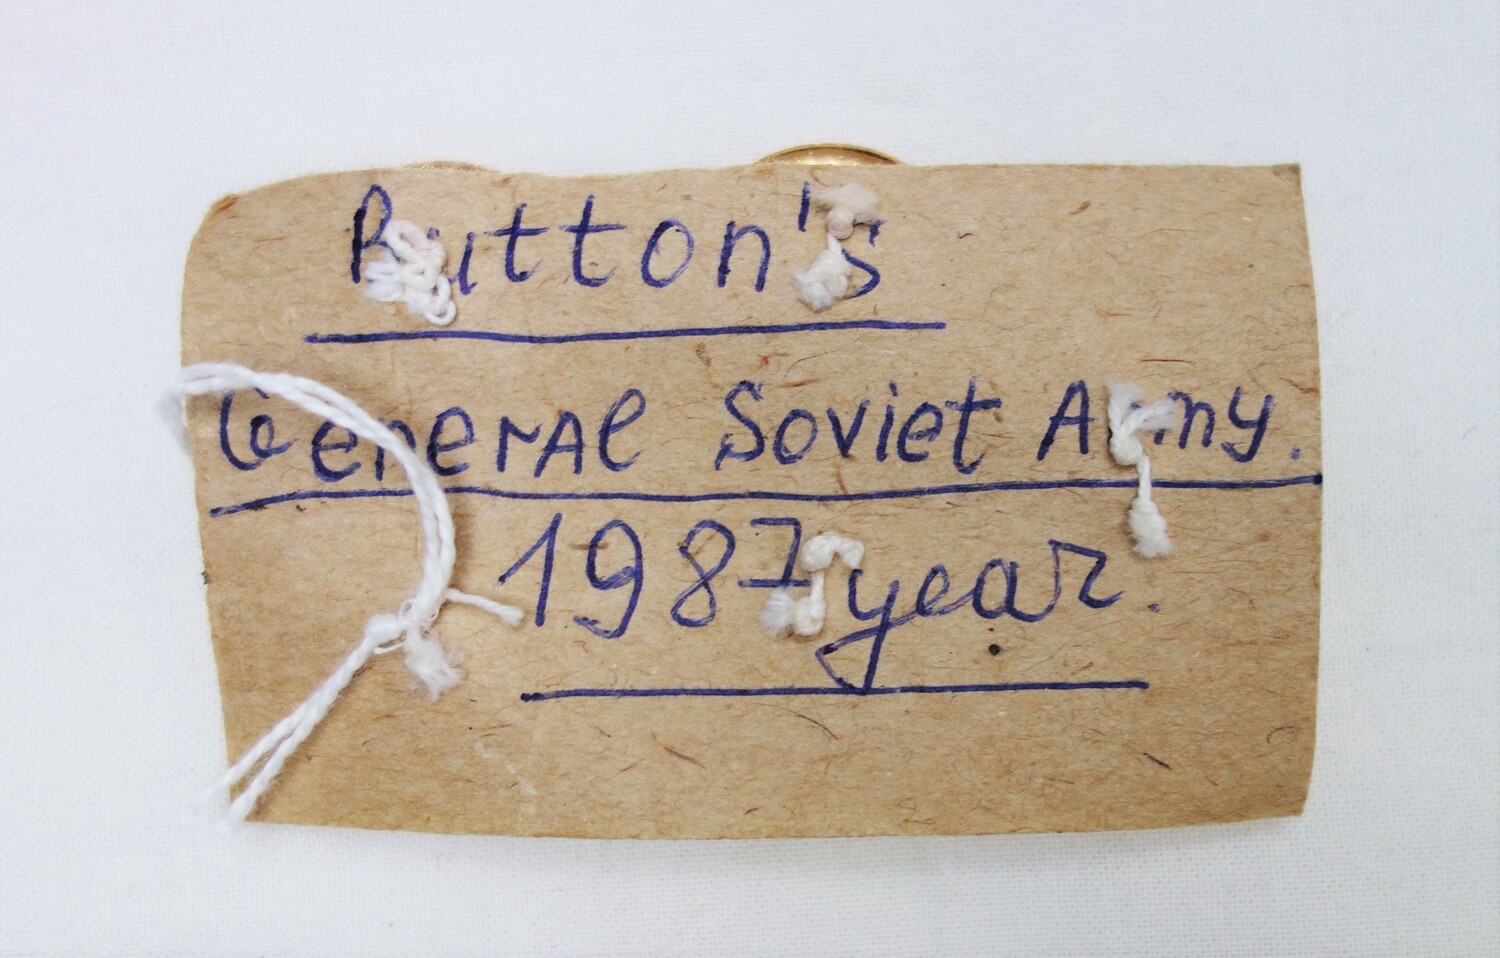 Button's
General Soviet Army.
1987 year.